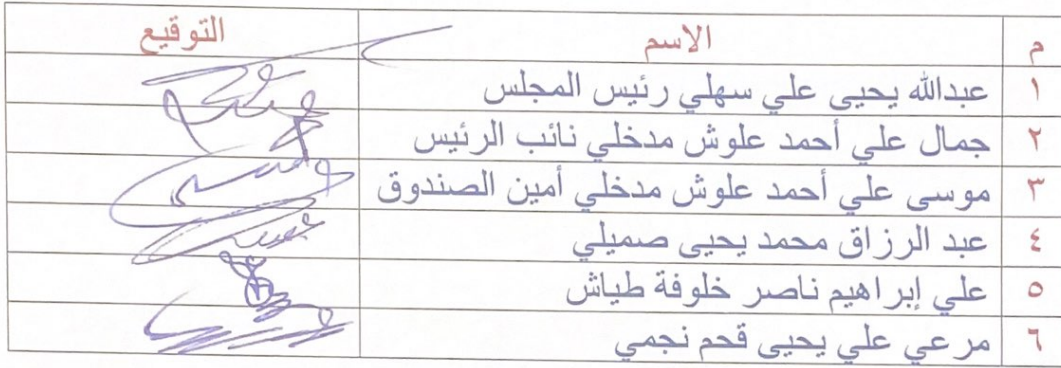 م الاسم التوقيع
١ عبدالله يحيى علي سهلي رئيس المجلس
٢ جمال علي أحمد علوش مدخلي نائب الرئيس
٣ موسى علي أحمد علوش مدخلي أمين الصندوق
٤ عبد الرزاق محمد يحيى صميلي
٥ علي إبراهيم ناصر خلوفة طياش
٦ مرعي علي يحيى قحم نجمي